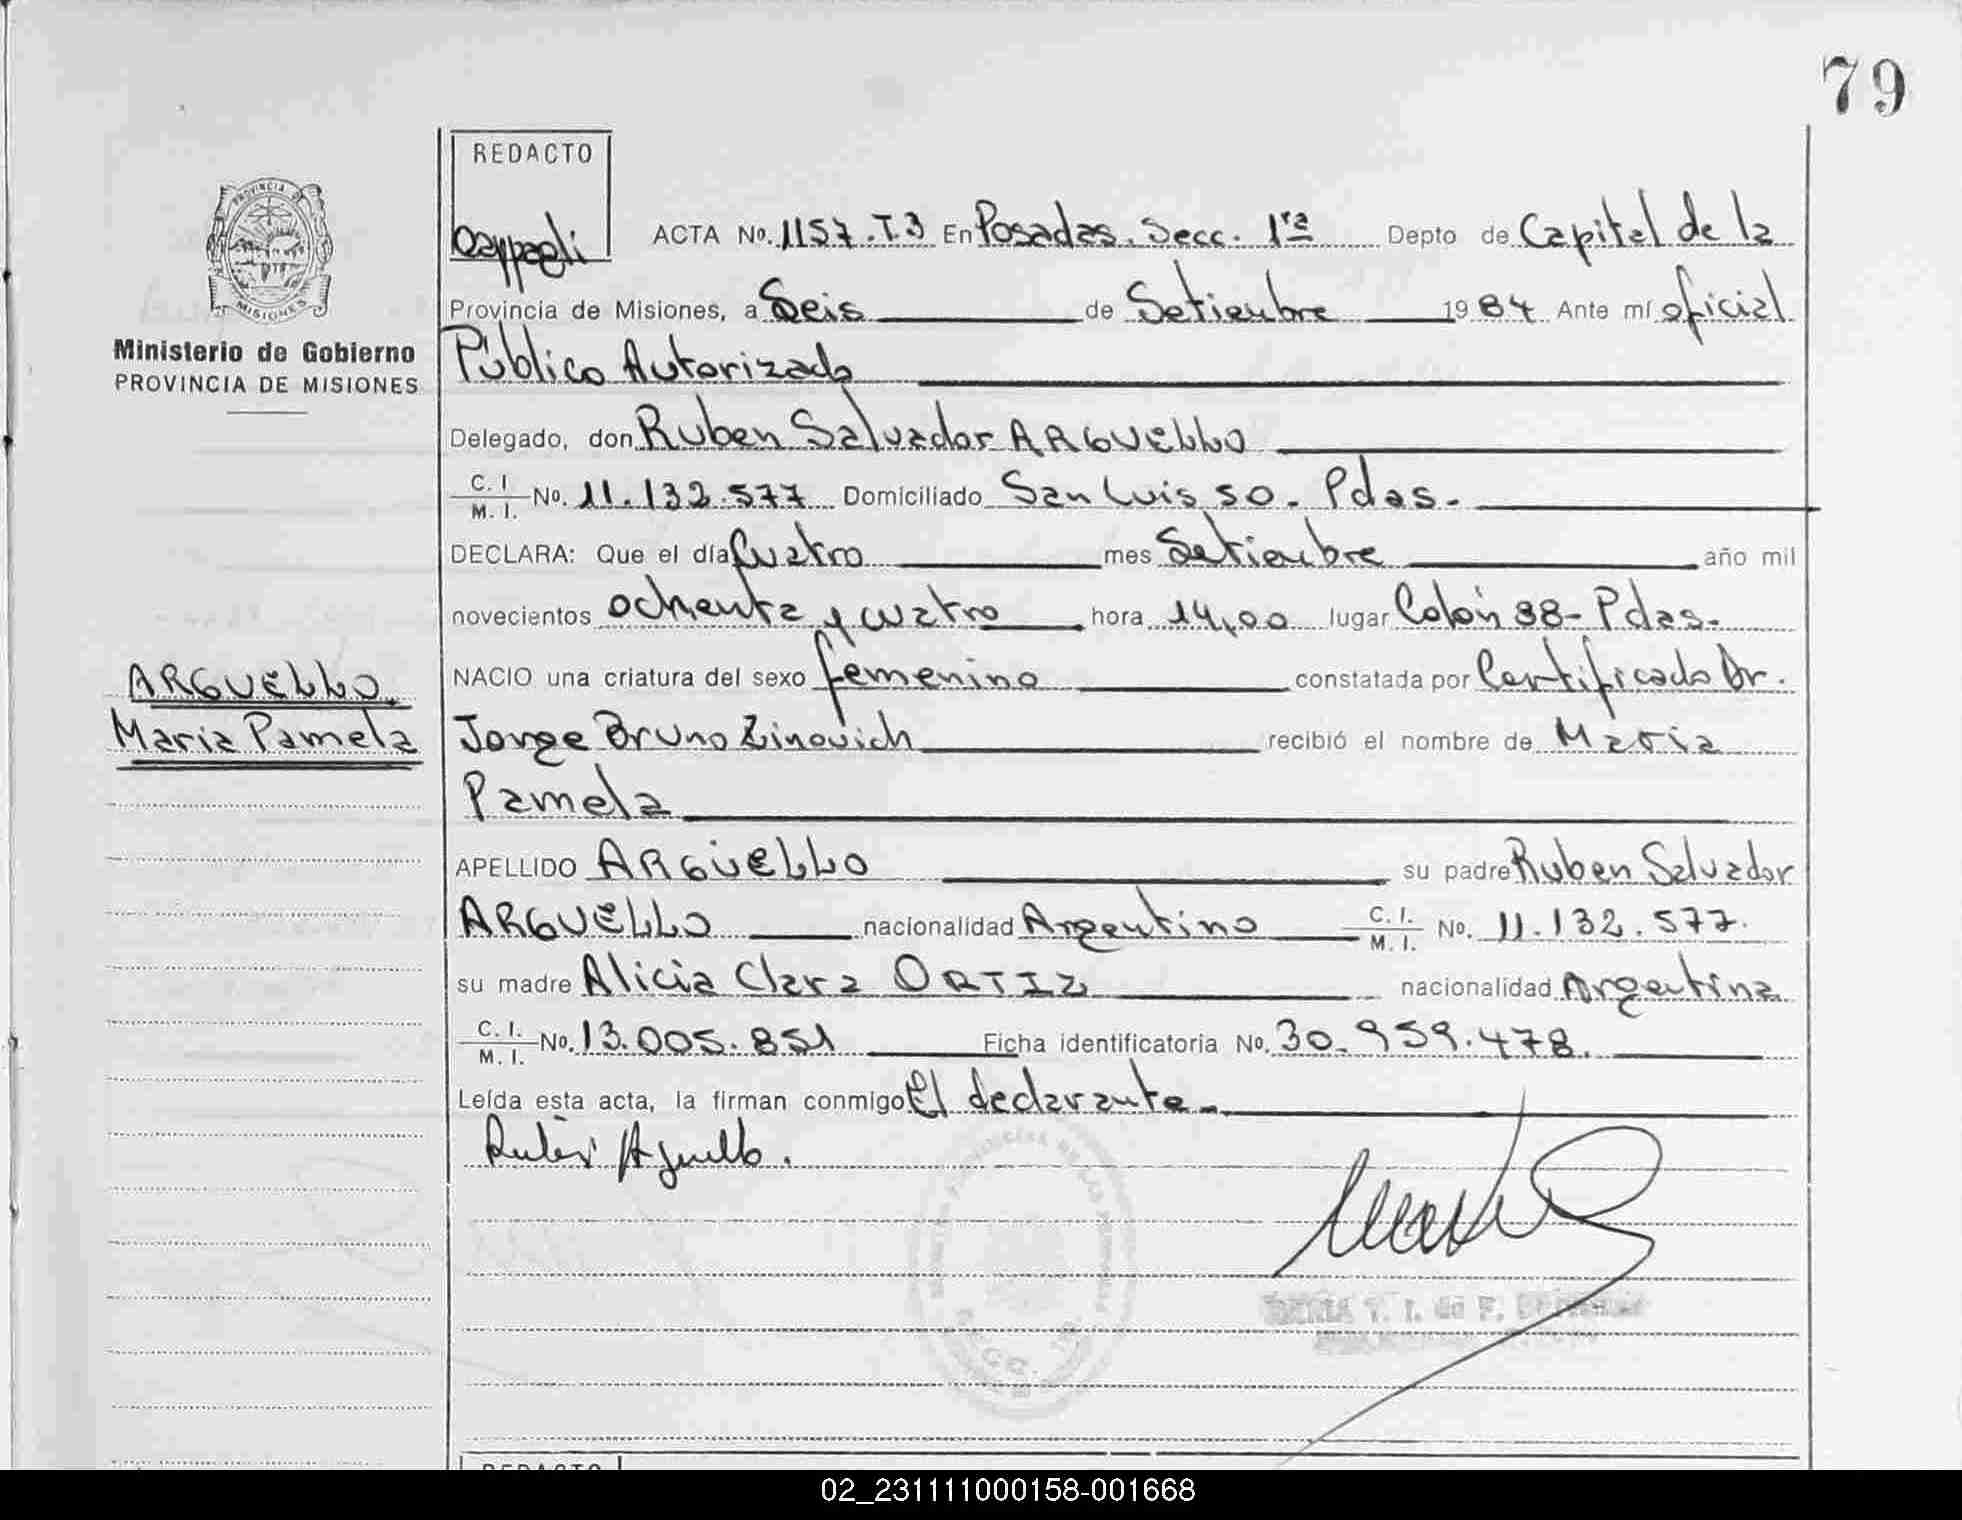 79
REDACTO
ACTA No. 1157.T.3 En Posadas. Secc. 1ra Depto de Capital de la
Provincia de Misiones, a Seis de Setiembre 1984 Ante mí oficial
PROVINCIA DE MISIONES
Ministerio de Gobierno
PROVINCIA DE MISIONES
Público Autorizado
Delegado, don Ruben Salvador ARGUELLO
C. I. M. I. No. 11.132.577 Domiciliado San Luis 50 - Pdas.-
DECLARA: Que el día Cuatro mes Setiembre año mil
novecientos ochenta y cuatro hora 14,00 lugar Colón 88- Pdas.
ARGUELLO.
Maria Pamela
NACIO una criatura del sexo femenino constatada por Certificado Dr.
Jorge Bruno Zinovich recibió el nombre de Maria
Pamela
APELLIDO ARGÜELLO su padre Ruben Salvador
ARGUELLO nacionalidad Argentino C. I. M. I. No. 11.132.577.
su madre Alicia Clara ORTIZ nacionalidad Argentina
C. I. M. I. No. 13.005.851 Ficha identificatoria No. 30.959.478.
Leída esta acta, la firman conmigo El declarante.-
Rubén Arguello.
REDACTO
02_231111000158-001668